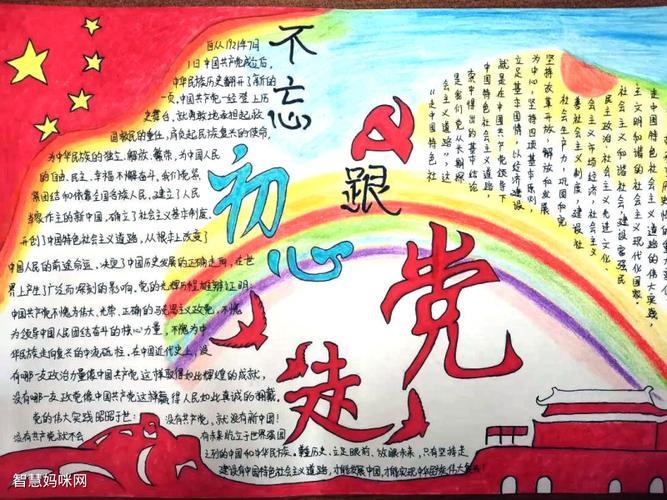 不忘
初心
跟
党
走
自从1921年7月
1日中国共产党成立后,
中华民族历史翻开了新的
一页,中国共产党一经登上历
史舞台,就勇敢地肩担起救
国救民的重任,肩负起民族复兴的使命,
为中华民族的独立、解放、繁荣,为中国人民
的自由、民主、幸福不懈奋斗,我们党紧
紧团结和依靠全国各族人民,建立了人民
当家作主的新中国,确立了社会主义基本制度,
开创了中国特色社会主义道路,从根本上改变了
中国人民的前途命运,决定了中国历史发展的正确走向,在世
界上产生了广泛而深刻的影响,党的光辉历程雄辩证明:
中国共产党不愧为伟大、光荣、正确的马克思主义政党,不愧
为领导中国人民团结奋斗的核心力量,不愧为中
华民族走向复兴的中流砥柱,在中国近代史上,没
有哪一支政治力量像中国共产党这样取得如此辉煌的成就,
没有哪一支政党像中国共产党这样赢得人民如此真诚的拥戴,
党的伟大实践昭昭于世:
没有共产党,就没有新中国!
没有共产党就不会
有未来屹立于世界强国
之列的中国和中华民族。鞭历史、立足眼前、放眼未来,只有坚持走
建设有中国特色社会主义道路,才能发展中国,才能实现中华民族伟大复兴!
走中国特色社会主义道路,
就是在中国共产党领导下
立足基本国情,以经济建设
为中心,坚持四项基本原则
坚持改革开放,解放和发展
社会生产力,巩固和完
善社会主义制度,建设社
会主义市场经济,社会主义
民主政治,社会主义先进文化,
社会主义和谐社会,建设富强民
主文明和谐的社会主义现代化国家。
智慧妈咪网